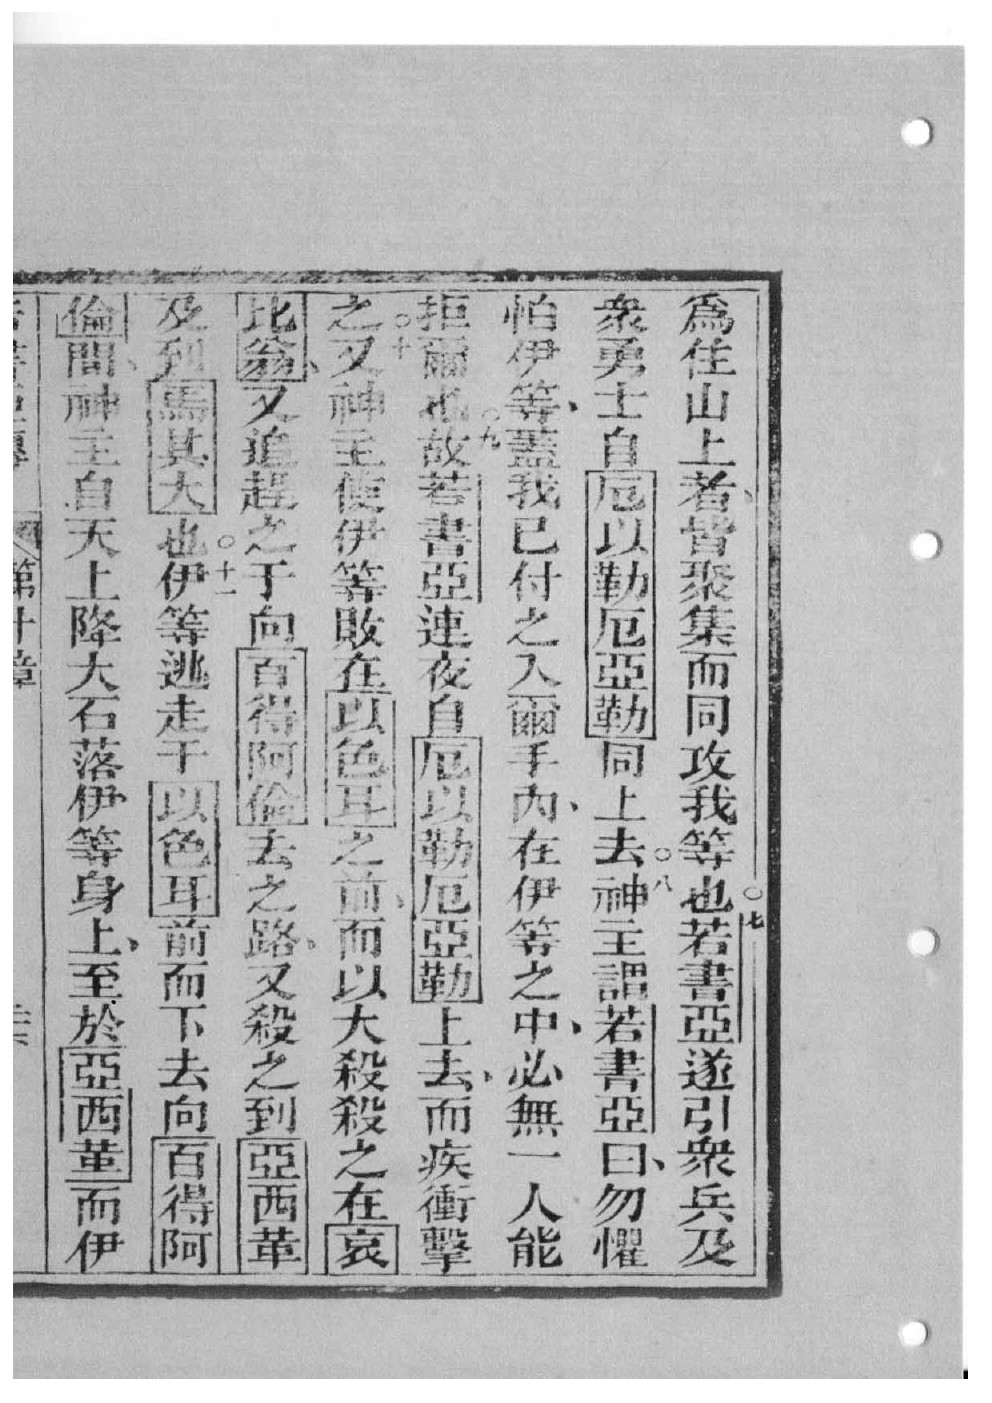 爲住山上者、皆聚集而同攻我等也○七若書亞遂引衆兵及
衆勇士自厄以勒厄亞勒同上去○八神主謂若書亞曰、勿懼
怕伊等、蓋我已付之入爾手內、在伊等之中、必無一人能
拒爾也○九故若書亞連夜自厄以勒厄亞勒上去、而疾衝擊
之○十又神主使伊等敗在以色耳之前、而以大殺殺之在哀
比翁、又追趕之于向百得阿倫去之路、又殺之到亞西革
及到馬其大也○十一伊等逃走于以色耳前而下去向百得阿
倫間、神主自天上降大石落伊等身上、至於亞西革而伊
若書亞傳 第十章